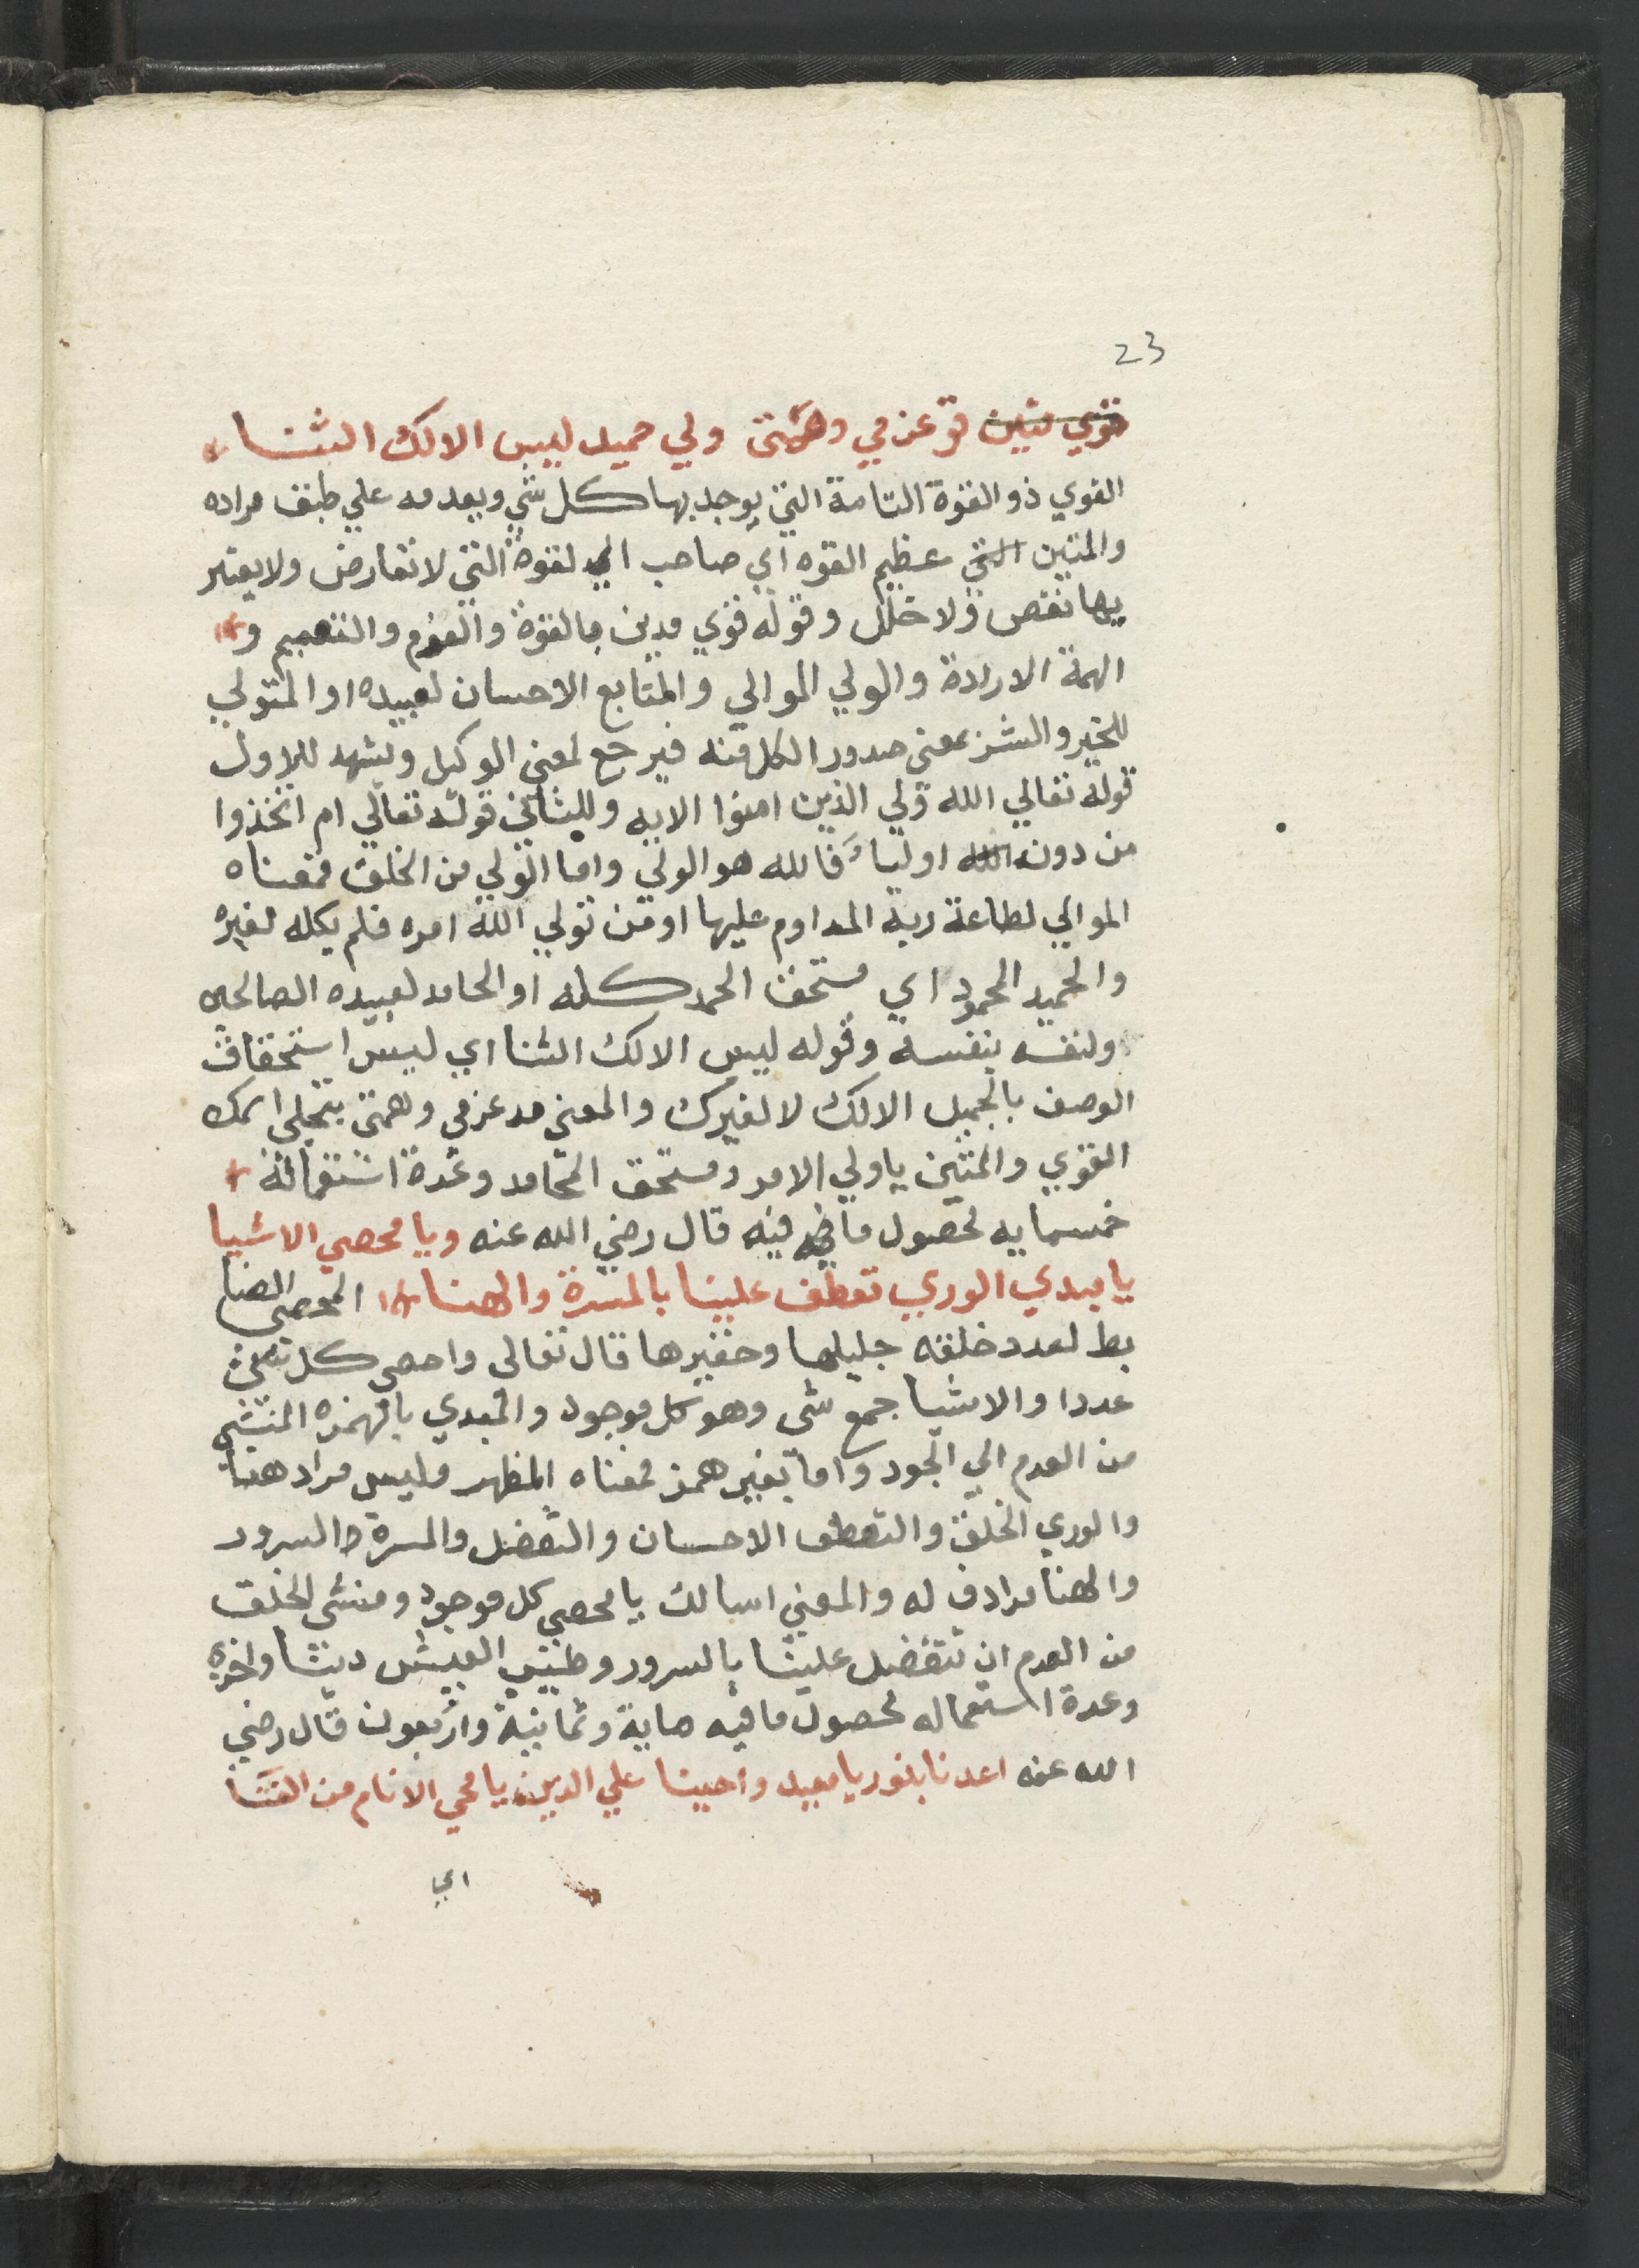 23
قوي متين قو عزمي وهمتي ولي حميد ليس الا لك الثنا
القوي ذو القوة التامة التي يوجد بها كل شي ويعدمه علي طبق مراده
والمتين التي عظيم القوه اي صاحب القوة التي لا تعارض ولا يعتر
يها نقص ولا خلل وقوله قوي بالقوة والعزم والتصميم و
الهمة الارادة والولي الموالي والمتابع الاحسان لعبيده او المتولي
للخير والشر بمعني صدور الكل منه فيرجع لمعني الوكيل ويشهد للاول
قوله تعالي الله ولي الذين امنوا الايه وللثاني قوله تعالي ام اتخذوا
من دونه الله اولياء فالله هو الولي واما الولي من الخلق فمعناه
الموالي لطاعة ربه المداوم عليها او من تولي الله امره فلم يكله لغيره
والحميد المحمود اي مستحق الحمد كله او الحامد لعبيده الصالحين
ولنفسه بنفسه وقوله ليس الا لك الثنا اي ليس استحقاق
الوصف بالجميل الا لك لا لغيرك والمعني مد عزمي وهمتي بتجلي اسمك
القوي والمتين يا ولي الامر ومستحق المحامد وعدة استعماله
خمسمايه لحصول ما فيه قال رضي الله عنه ويا محصي الاشيا
يا مبدي الوري تعطف علينا بالمسرة والهنا المحصي الضا
بط لعدد خلقه جليلها وحقيرها قال تعالى واحصى كل شئ
عددا والاشيا جمع شى وهو كل موجود والمبدي بالهمزه المنشي
من العدم الي الجود واما بغير همز فمعناه المظهر وليس مراد هنا
والوري الخلق والتعطف الاحسان والتفضل والمسرة السرور
والهنا مرادف له والمعني اسالك يا محصي كل موجود ومنشى الخلق
من العدم ان تتفضل علينا بالسرور وطيب العيش دنيا واخره
وعدة استعماله لحصول ما فيه ماية وثمانية واربعون قال رضي
الله عنه اعدنا بنور يا معيد واحينا علي الدين يا محي الانام من الفنا
اي